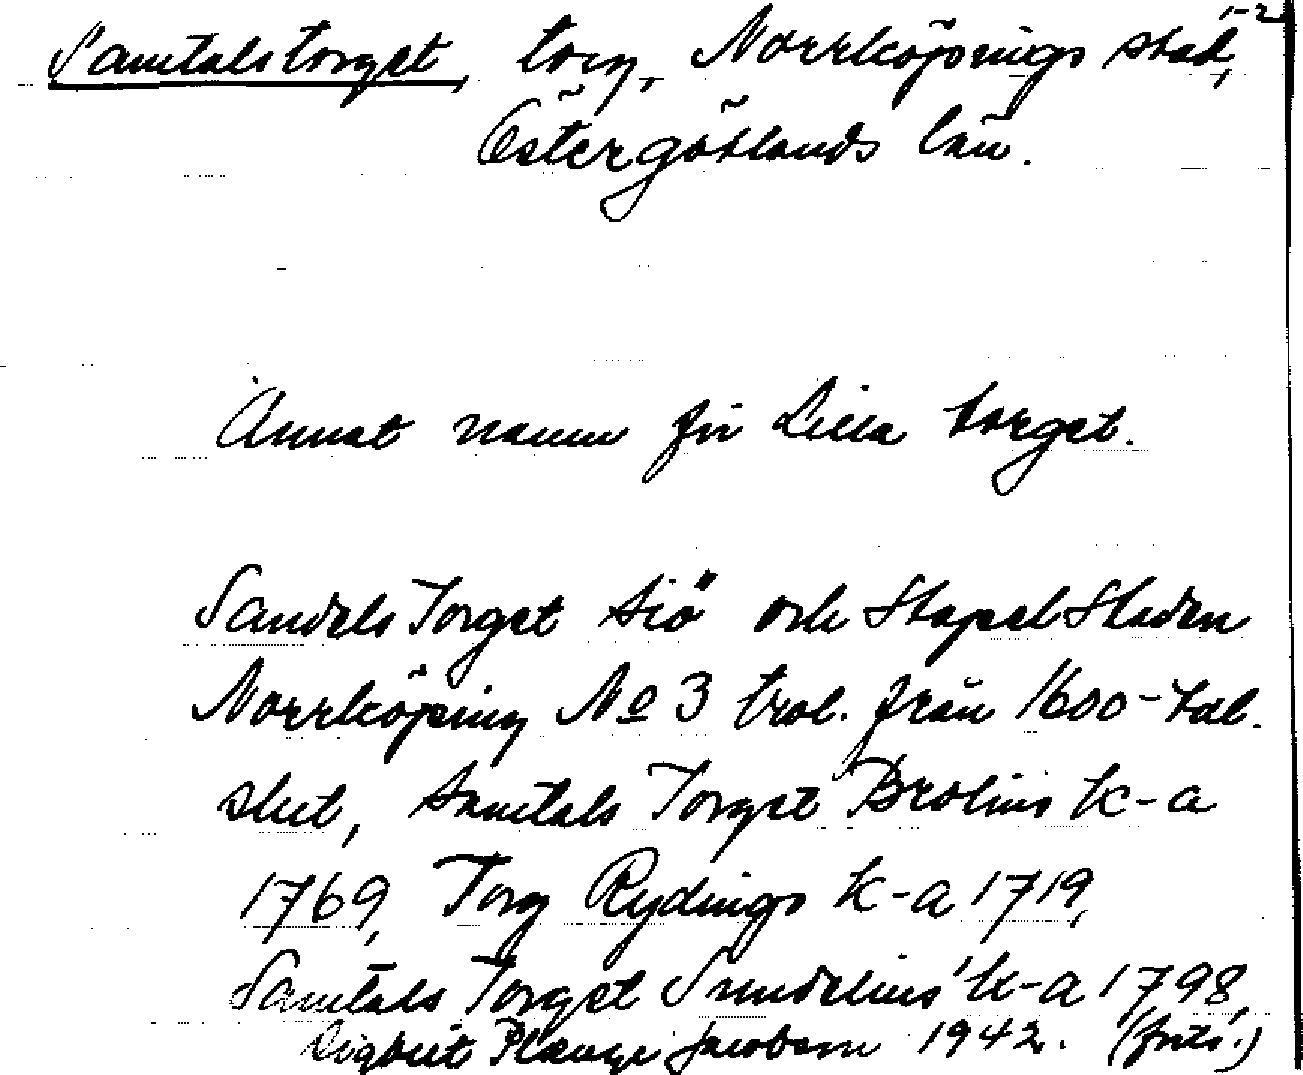 1-2
Samtalstorget, torg, Norrköpings stad,
Östergötlands län.
Annat namn för Lilla torget.
Samdels Torget Siö och Stapel Staden
Norrköping No 3 trol. från 1600-tal.
slut, Samtals Torget Brolins k-a
1769, Torg Rydings k-a 1719,
Samtals Torget Sundelius' k-a 1798,
Sigbrit Plænge Jacobson 1942. (forts.)